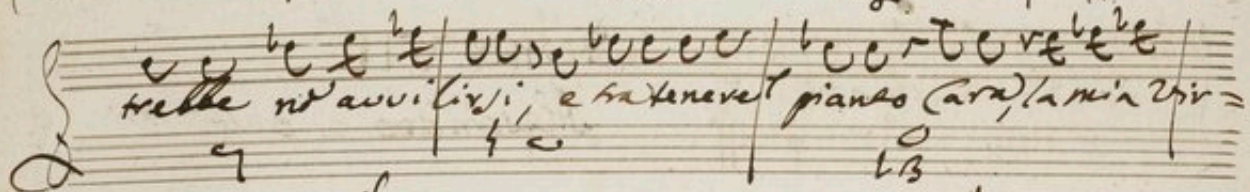 trebbe nõ avvilirsi, e tratenere'l pianto Cara, la mia Vir=